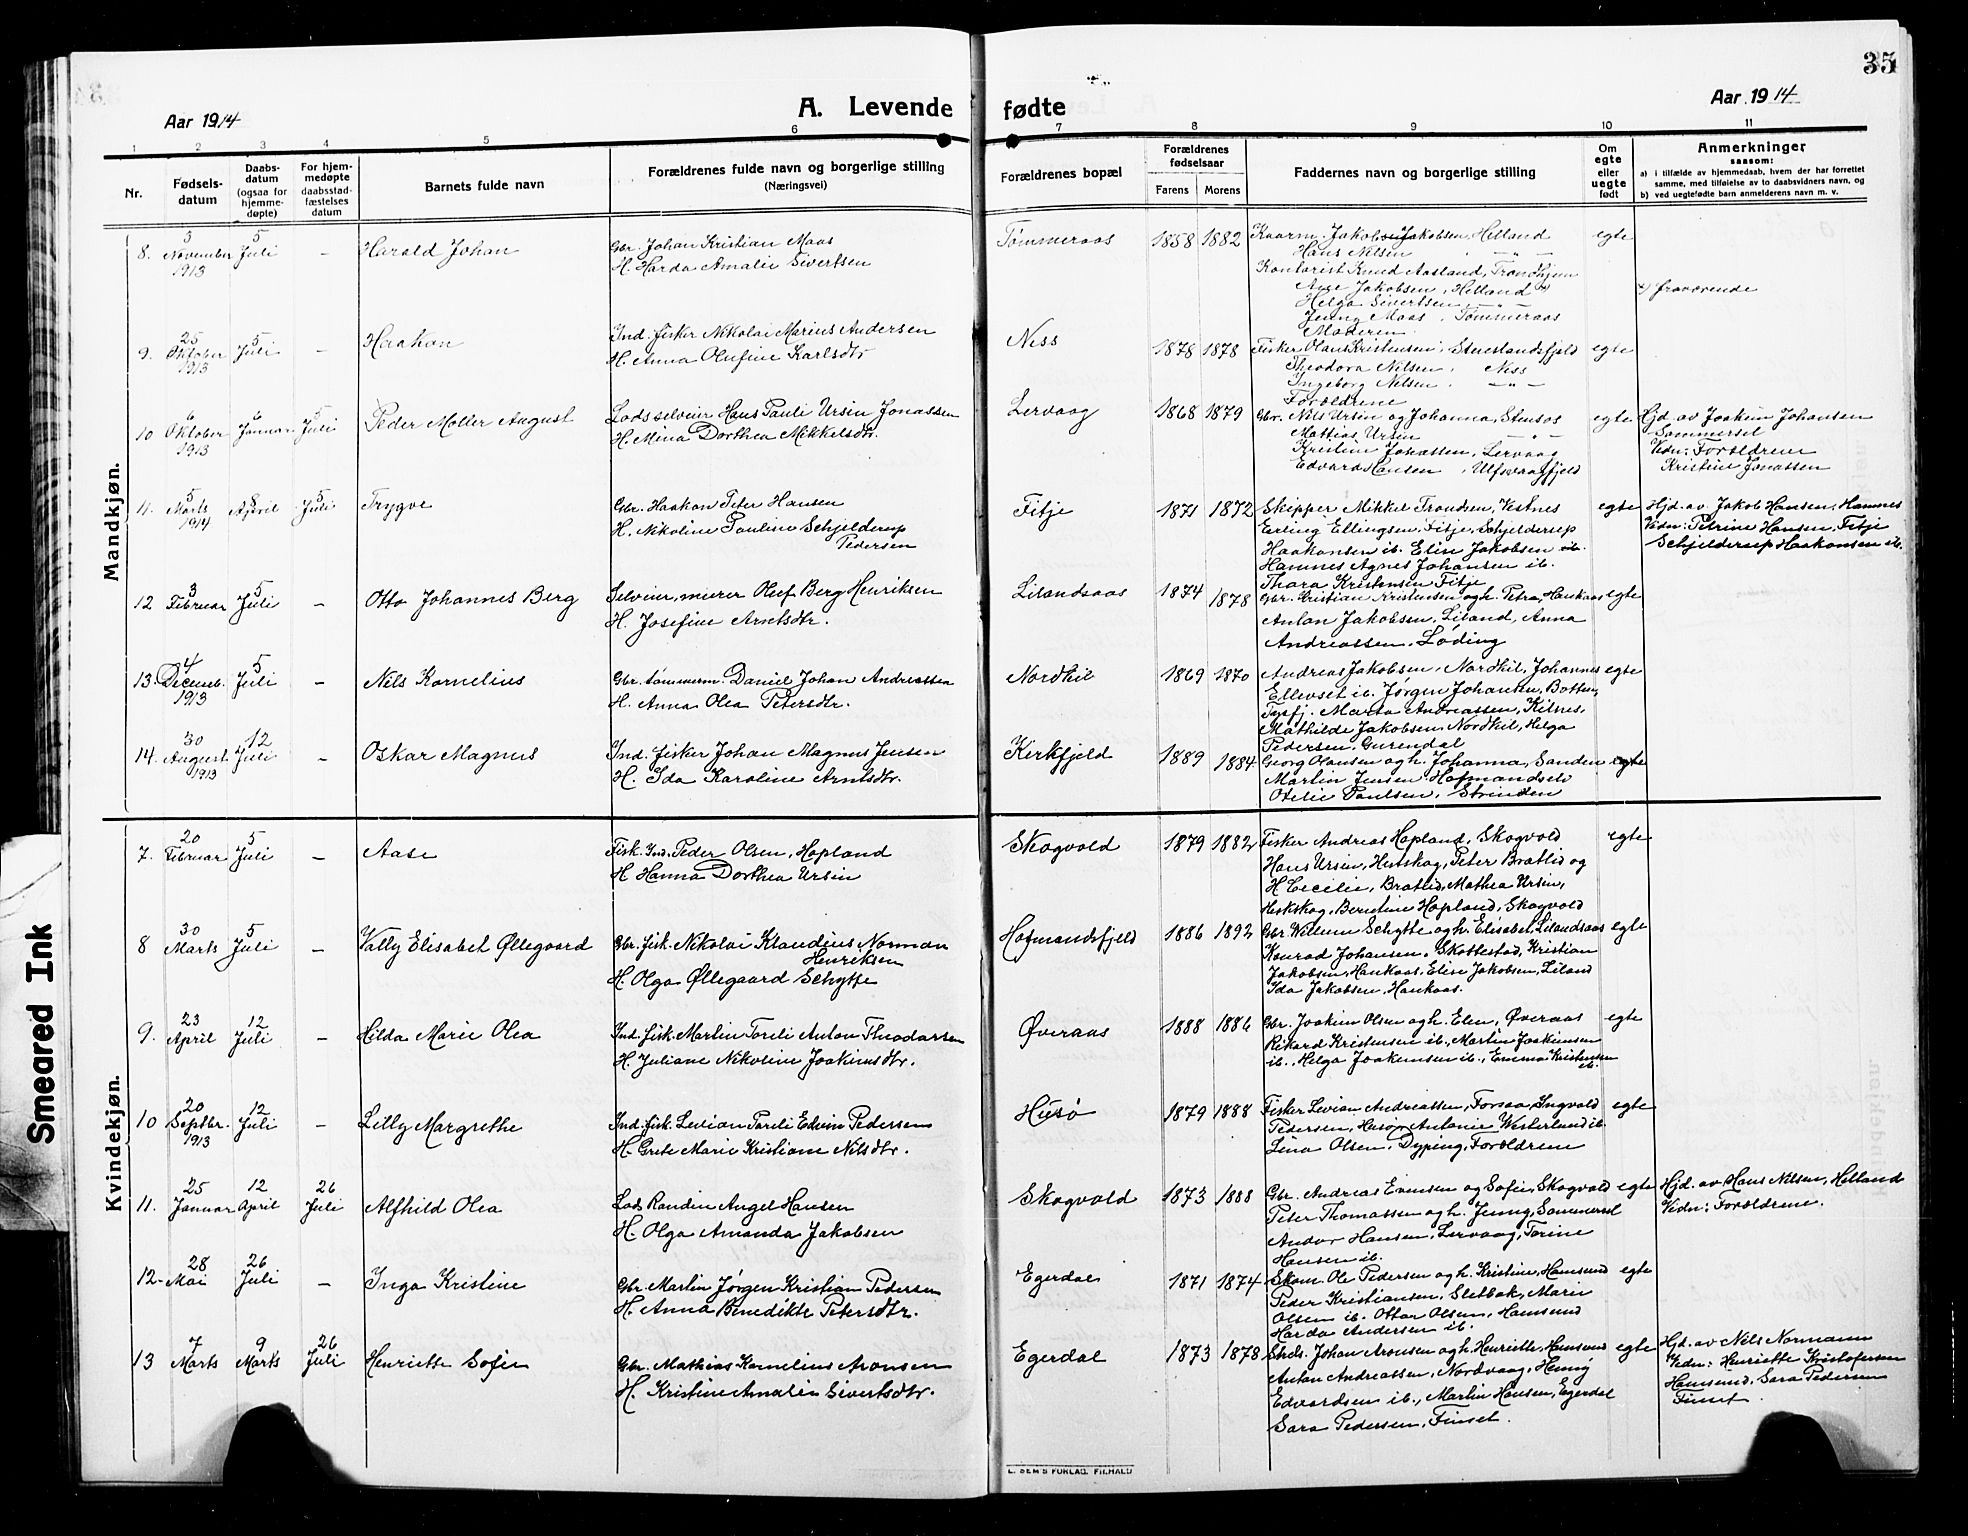 35
Aar 1914
A. Levende fødte
Aar 1914
1 2 3 4 5 6 7 8 9 10 11
Nr.
Fødsels-
datum
Daabs-
datum
(ogsaa for
hjemme-
døpte)
For hjem-
medøpte
daabsstad-
fæstelses
datum
Barnets fulde navn
Forældrenes fulde navn og borgerlige stilling
(Næringsvei)
Forældrenes bopæl
Forældrenes
fødselsaar
Farens Morens
Faddernes navn og borgerlige stilling
Om
egte
eller
uegte
født
Anmerkninger
saasom:
a) i tilfælde av hjemmedaab, hvem der har forrettet
samme, med tilføielse av to daabsvidners navn, og
b) ved uegtefødte barn anmelderens navn m. v.
Mandkjøn.
8. 3 November 1913 5 Juli - Harald Johan
Gbr. Johan Kristian Maas
H. Harda Amalie Sivertsen
Tømmeraas 1858 1882
Kaarm. Jakob Jakobsen, Helland
Hans Nilsen — " —
Kontorist Knud Aasland, Trondhjem
Aage Jakobsen, Helland x)
Helga Sivertsen — " —
Jenny Maas, Tømmeraas
Moderen.
egte
x) fraværende
9. 25 Oktober 1913 5 Juli - Haakon
Ind. fisker Nikolai Marius Andersen
H. Anna Olufine Karlsdtr
Ness 1878 1878
Fisker Olaus Kristensen, Stenslandsfjeld
Theodora Nilsen, Ness
Ingeborg Nilsen, — " —
Forældrene
egte
10 6 Oktober 1913 6 Januar 5 Juli Peder Møller August
Lods selveier Hans Pauli Ursin Jonassen
H. Mina Dorthea Mikkelsdtr.
Lervaag 1868 1879
Gbr. Nils Ursin og Johanna, Stensøs
Mattias Ursin — " —
Kristine Jonassen, Lervaag
Edvard Hansen, Ulfsvaagfjeld
egte
Hjd. av Joakim Johansen
Sommersel
Vidn: Forældrene
Kristine Jonassen
11. 5 Marts 1914 8 April 5 Juli Trygve
Gbr. Haakon Peter Hansen
H. Nikoline Pauline Schjelderup
Pedersen
Fitje 1871 1872
Skipper Mikker Trondsen, Vestnes
Erling Ellingsen, Fitje, Schjelderup
Haakonsen ib. Elise Jakobsen ib.
Hamnes Agnes Johansen ib.
Thora Kristensen Fitje
egte
Hjd. av Jakob Hansen, Hamnes
Vidn: Petrine Hansen, Fitje
Schjelderup Haakonsen ib.
12 3 Februar 5 Juli - Otto Johannes Berg
Selveier, murer Oluf Berg Henriksen
H. Josefine Arntsdtr.
Lilandsaas 1874 1878
Gbr. Kristian Kristensen og h. Petra, Haukaas
Anton Jakobsen, Liland, Anna
Andreassen, Løding
egte
13. 4 Decemb. 1913 5 Juli - Nils Kornelius
Gbr. tømmerm. Daniel Johan Andreassen
H. Anna Olea Petersdtr.
Nordkil 1869 1870
Andreas Jakobsen, Nordkil, Johannes
Ellevset ib. Jørgen Johansen, Botten,
Tysfj. Marta Andreassen, Kilnes,
Mathilde Jakobsen, Nordkil, Helga
Pedersen, Gurendal
egte
14. 30 August 1913 12 Juli - Oskar Magnus
Ind. fisker Johan Magnus Jensen
H. Ida Karoline Arntsdtr.
Kirkfjeld 1889 1884
Georg Olausen og h. Johanna, Sanden
Martin Jensen, Hofmandselv
Otelie Paulsen, Strinden
egte
Kvindekjøn.
7. 20 Februar 5 Juli - Aase
Fisk. Ind. Peder Olsen, Hopland
H. Hanna Dorthea Ursin
Skogvold 1879 1882
Fisker Andreas Hopland, Skogvold
Hans Ursin, Heskskog, Peter Bratlid og
H. Cecilie, Bratlid, Mathea Ursin,
Heskskog, Berntine Hopland, Skogvold
egte
8 30 Marts 5 Juli - Vally Elisabet Øllegaard
Gbr. fisk. Nikolai Klaudius Norman
Henriksen
H. Olga Øllegaard Schytte
Hofmandsfjeld 1886 1892
Gbr. Willum Schytte og h. Elisabet, Lilandsaas
Konrad Johansen, Skottestad, Kristian
Jakobsen, Haukaas, Elise Jakobsen, Liland
Ida Jakobsen, Haukaas.
egte
9. 23 April 12 Juli - Hilda Marie Olea
Ind. fisk. Martin Toreli Anton Theodorsen
H. Juliane Nikoline Joakimsdtr.
Øveraas 1888 1886
Gbr. Joakim Olsen og h. Elen, Øveraas
Rikard Kristensen ib., Martin Joakimsen
ib., Helga Joakimsen ib., Emma Kristensen
ib.
egte
10 20 Septbr. 1913 12 Juli - Lilly Margrethe
Ind. fisk. Levion Toreli Edvin Pedersen
H. Grete Marie Kristiane Nilsdtr.
Husø 1879 1888
Fisker Levion Andreassen, Forsaa, Ingvald
Pedersen, Husø, Antonie Westerlund ib.
Lina Olsen, Dyping, Forældrene
egte
11. 25 Januar 12 April 26 Juli Alfhild Olea
Lods Randin Angel Hansen
H. Olga Amanda Jakobsen
Skogvold 1873 1888
Gbr. Andreas Evensen og Sofie, Skogvold
Peter Thomassen og h. Jenny, Sommersel
Andor Hansen, Lervaag, Torine
Hansen ib.
egte
Hjd. av Hans Nilsen, Helland
Vidn: Forældrene.
12- 28 Mai 26 Juli - Inga Kristine
Gbr. Martin Jørgen Kristian Pedersen
H. Anna Benedikte Petersdtr.
Egerdal 1871 1874
Skom. Ole Pedersen og h. Kristine, Hamsund
Peder Kristiansen, Sletbak, Marie
Olsen ib. Ottar Olsen, Hamsund
Harda Andersen ib.
egte
13 7 Marts 9 Marts 26 Juli Henriette Sofie
Gbr. Mathias Kornelius Aronsen
H. Kristine Amalie Sivertsdtr.
Egerdal 1873 1878
Johan Aronsen og h. Henriette, Hamsund
Anton Andreassen, Nordvaag, Henny
Edvardsen ib., Martin Hansen, Egerdal
Sara Pedersen, Finset.
egte
Hjd. av Nils Normann
Vidn: Henriette Kristofersen
Hamsund, Sara Pedersen
Finset.
Smeared Ink
E. SEM'S FORLAG, FR.HALD